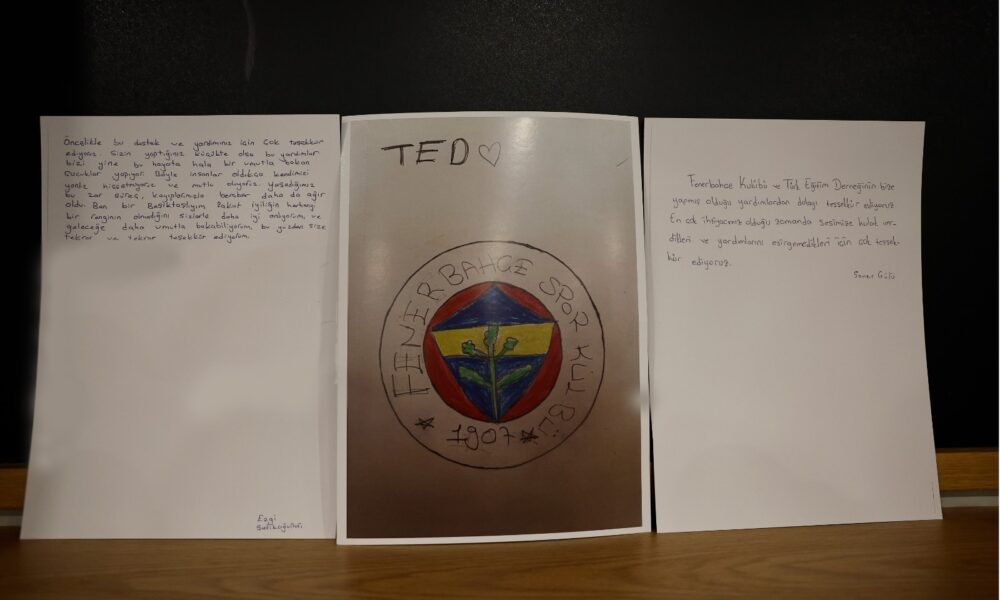 Öncelikle bu destek ve yardımınız için çok teşekkür
ediyoruz. Sizin yaptığınız küçükte olsa bu yardımlar
bizi yine bu hayata hala bir umutla bakan
çocuklar yapıyor. Böyle insanlar oldukça kendimizi
yanlız hissetmiyoruz ve mutlu oluyoruz. Yaşadığımız
bu zor süreç, kayıplarımızla beraber daha da ağır
oldu. Ben bir Beşiktaşlıyım fakat iyiliğin herhangi
bir renginin olmadığını sizlerle daha iyi anlıyorum, ve
geleceğe daha umutla bakabiliyorum, bu yüzden size
tekrar ve tekrar teşekkür ediyorum.
Ezgi
TED ♡
FENERBAHÇE SPOR KULÜBÜ
1907
Fenerbahçe Kulübü ve Türk Eğitim Derneğinin bize
yapmış olduğu yardımlardan dolayı teşekkür ediyoruz.
En çok ihtiyacımız olduğu zamanda sesimize kulak ver-
dikleri ve yardımlarını esirgemedikleri için çok teşek-
kür ediyoruz.